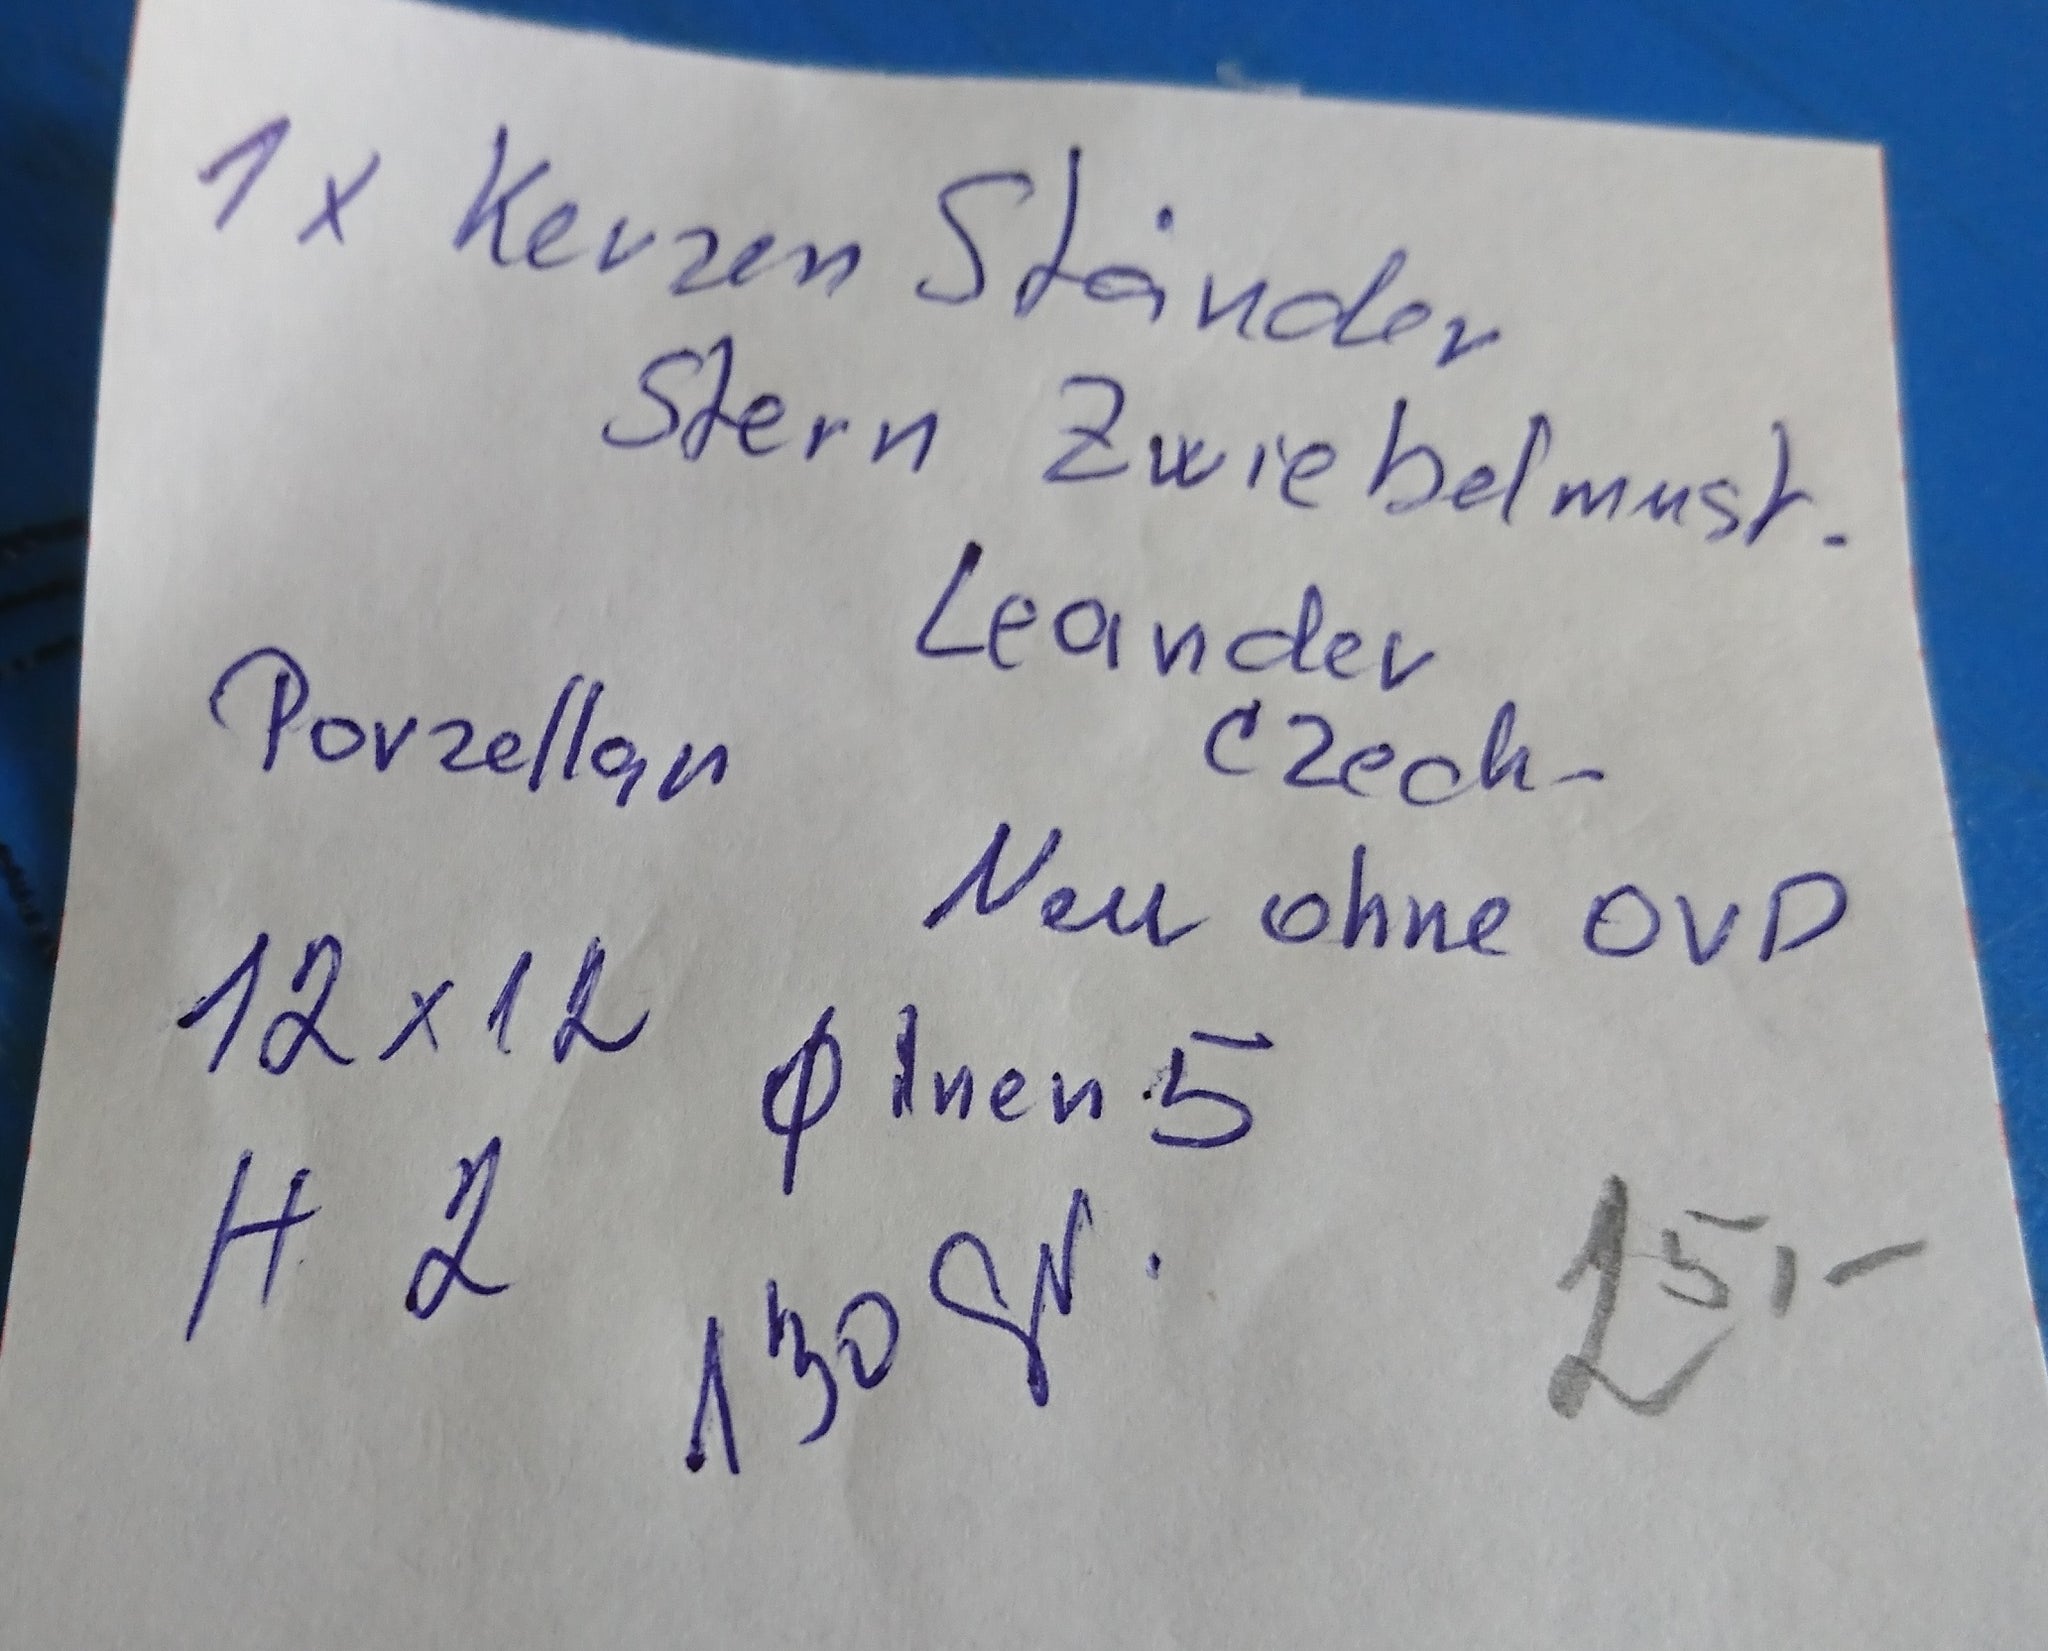 1x Kerzen Ständer
Stern Zwiebelmust.
Leander
Porzellan Czech-
Neu ohne OVD
12x12 ϕ Inen 5
H 2 130 gr.
25,-